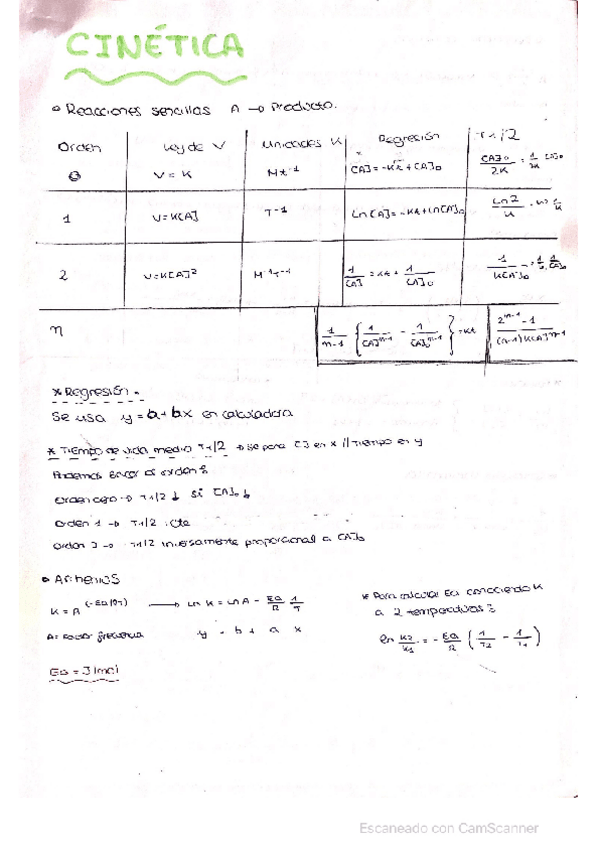 CINÉTICA
Reacciones sencillas A → Producto.
Orden Ley de V Unidades K Regresión T 1/2
0 V = K M t⁻¹ [A] = -Kt + [A]₀ [A]₀/2K
1 V = K[A] T⁻¹ Ln[A] = -Kt + Ln[A]₀ Ln2/K
2 V = K[A]² M⁻¹T⁻¹ 1/[A] = Kt + 1/[A]₀ 1/K[A]₀
n 1/(n-1) { 1/[A]ⁿ⁻¹ - 1/[A]₀ⁿ⁻¹ } = Kt (2ⁿ⁻¹ - 1)/((n-1)K[A]ⁿ⁻¹)
* Regresión.
Se usa y = a + bx en calculadora
* Tiempo de vida medio T1/2 → se pone [ ] en x // Tiempo en y
Podemos sacar el orden:
orden cero → T1/2 ↓ si [A]₀ ↓
orden 1 → T1/2 : cte
orden 2 → T1/2 inversamente proporcional a [A]₀
Arhenius
K = A (-Ea/RT) → Ln K = Ln A - Ea/R 1/T
A = Factor frecuencia y = b + a x
Ea = J/mol
* Para calcular Ea conociendo K
a 2 temperaturas:
Ln K2/K1 = - Ea/R ( 1/T2 - 1/T1 )
Escaneado con CamScanner